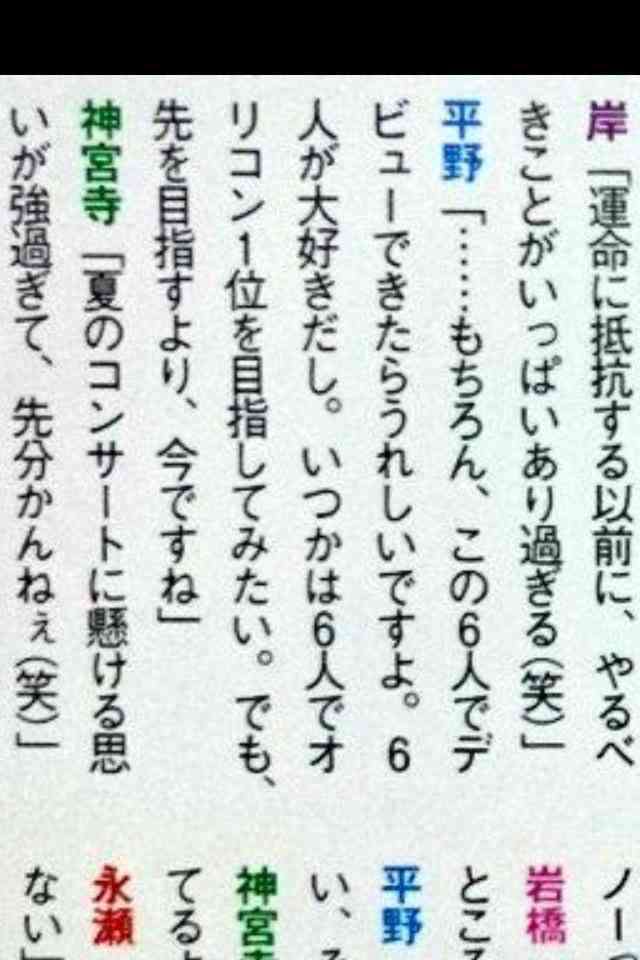 岸「運命に抵抗する以前に、やるべ
きことがいっぱいあり過ぎる(笑)」
平野「……もちろん、この6人でデ
ビューできたらうれしいですよ。6
人が大好きだし。いつかは6人でオ
リコン1位を目指してみたい。でも、
先を目指すより、今ですね」
神宮寺「夏のコンサートに懸ける思
いが強過ぎて、先分かんねぇ(笑)」
ノー
岩橋
ところ
平野
い、
神宮寺
てる
永瀬
ない」